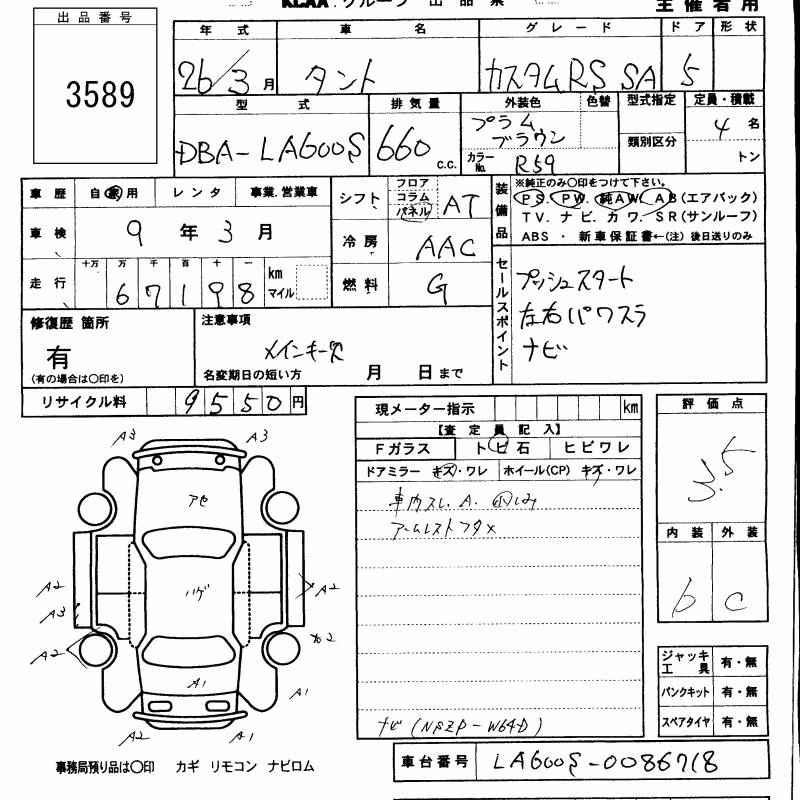 KCAA.グループ 出品票
主催者用
出品番号
3589
年式 車名 グレード ドア 形状
26/3月 タント カスタムRS SA 5
型式 排気量 外装色 色替 型式指定 定員・積載
DBA-LA600S 660 c.c. プラム ブラウン 4名
類別区分
カラーNo. R59 トン
車歴 自家用 レンタ 事業.営業車
車検 9年3月
走行 十万 万 千 百 十 一 km マイル
67198
シフト フロア コラム パネル AT
冷房 AAC
燃料 G
装備品
※純正のみ○印をつけて下さい。
PS. PW. 純AW. AB(エアバック)
TV. ナビ. カワ. SR(サンルーフ)
ABS ・ 新車保証書←(注)後日送りのみ
セールスポイント
プッシュスタート
左右パワスラ
ナビ
修復歴 箇所
有
(有の場合は○印を)
注意事項
メインキー欠
名変期日の短い方 月 日まで
リサイクル料 9550円
現メーター指示 km
【査定員記入】
Fガラス トビ石 ヒビワレ
ドアミラー キズ・ワレ ホイール(CP) キズ・ワレ
車内スレ.A.小シミ
アームレストフタ×
ナビ(NSZP-W64D)
評価点
3.5
内装 外装
b C
ジャッキ工具 有・無
パンクキット 有・無
スペアタイヤ 有・無
A3 A3
アセ
A2 A2
ハゲ
A3
A2
A1 A1
A2 A1
事務局預り品は○印 カギ リモコン ナビロム
車台番号 LA600S-0086718